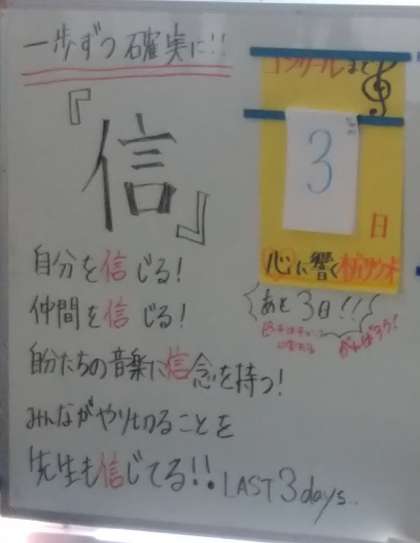 一歩ずつ確実に!!
『信』
コンクールまで
3
日
心に響く
あと3日!!
がんばろう!
自分を信じる!
仲間を信じる!
自分たちの音楽に信念を持つ!
みんながやり切ることを
先生も信じてる!! LAST 3 days.